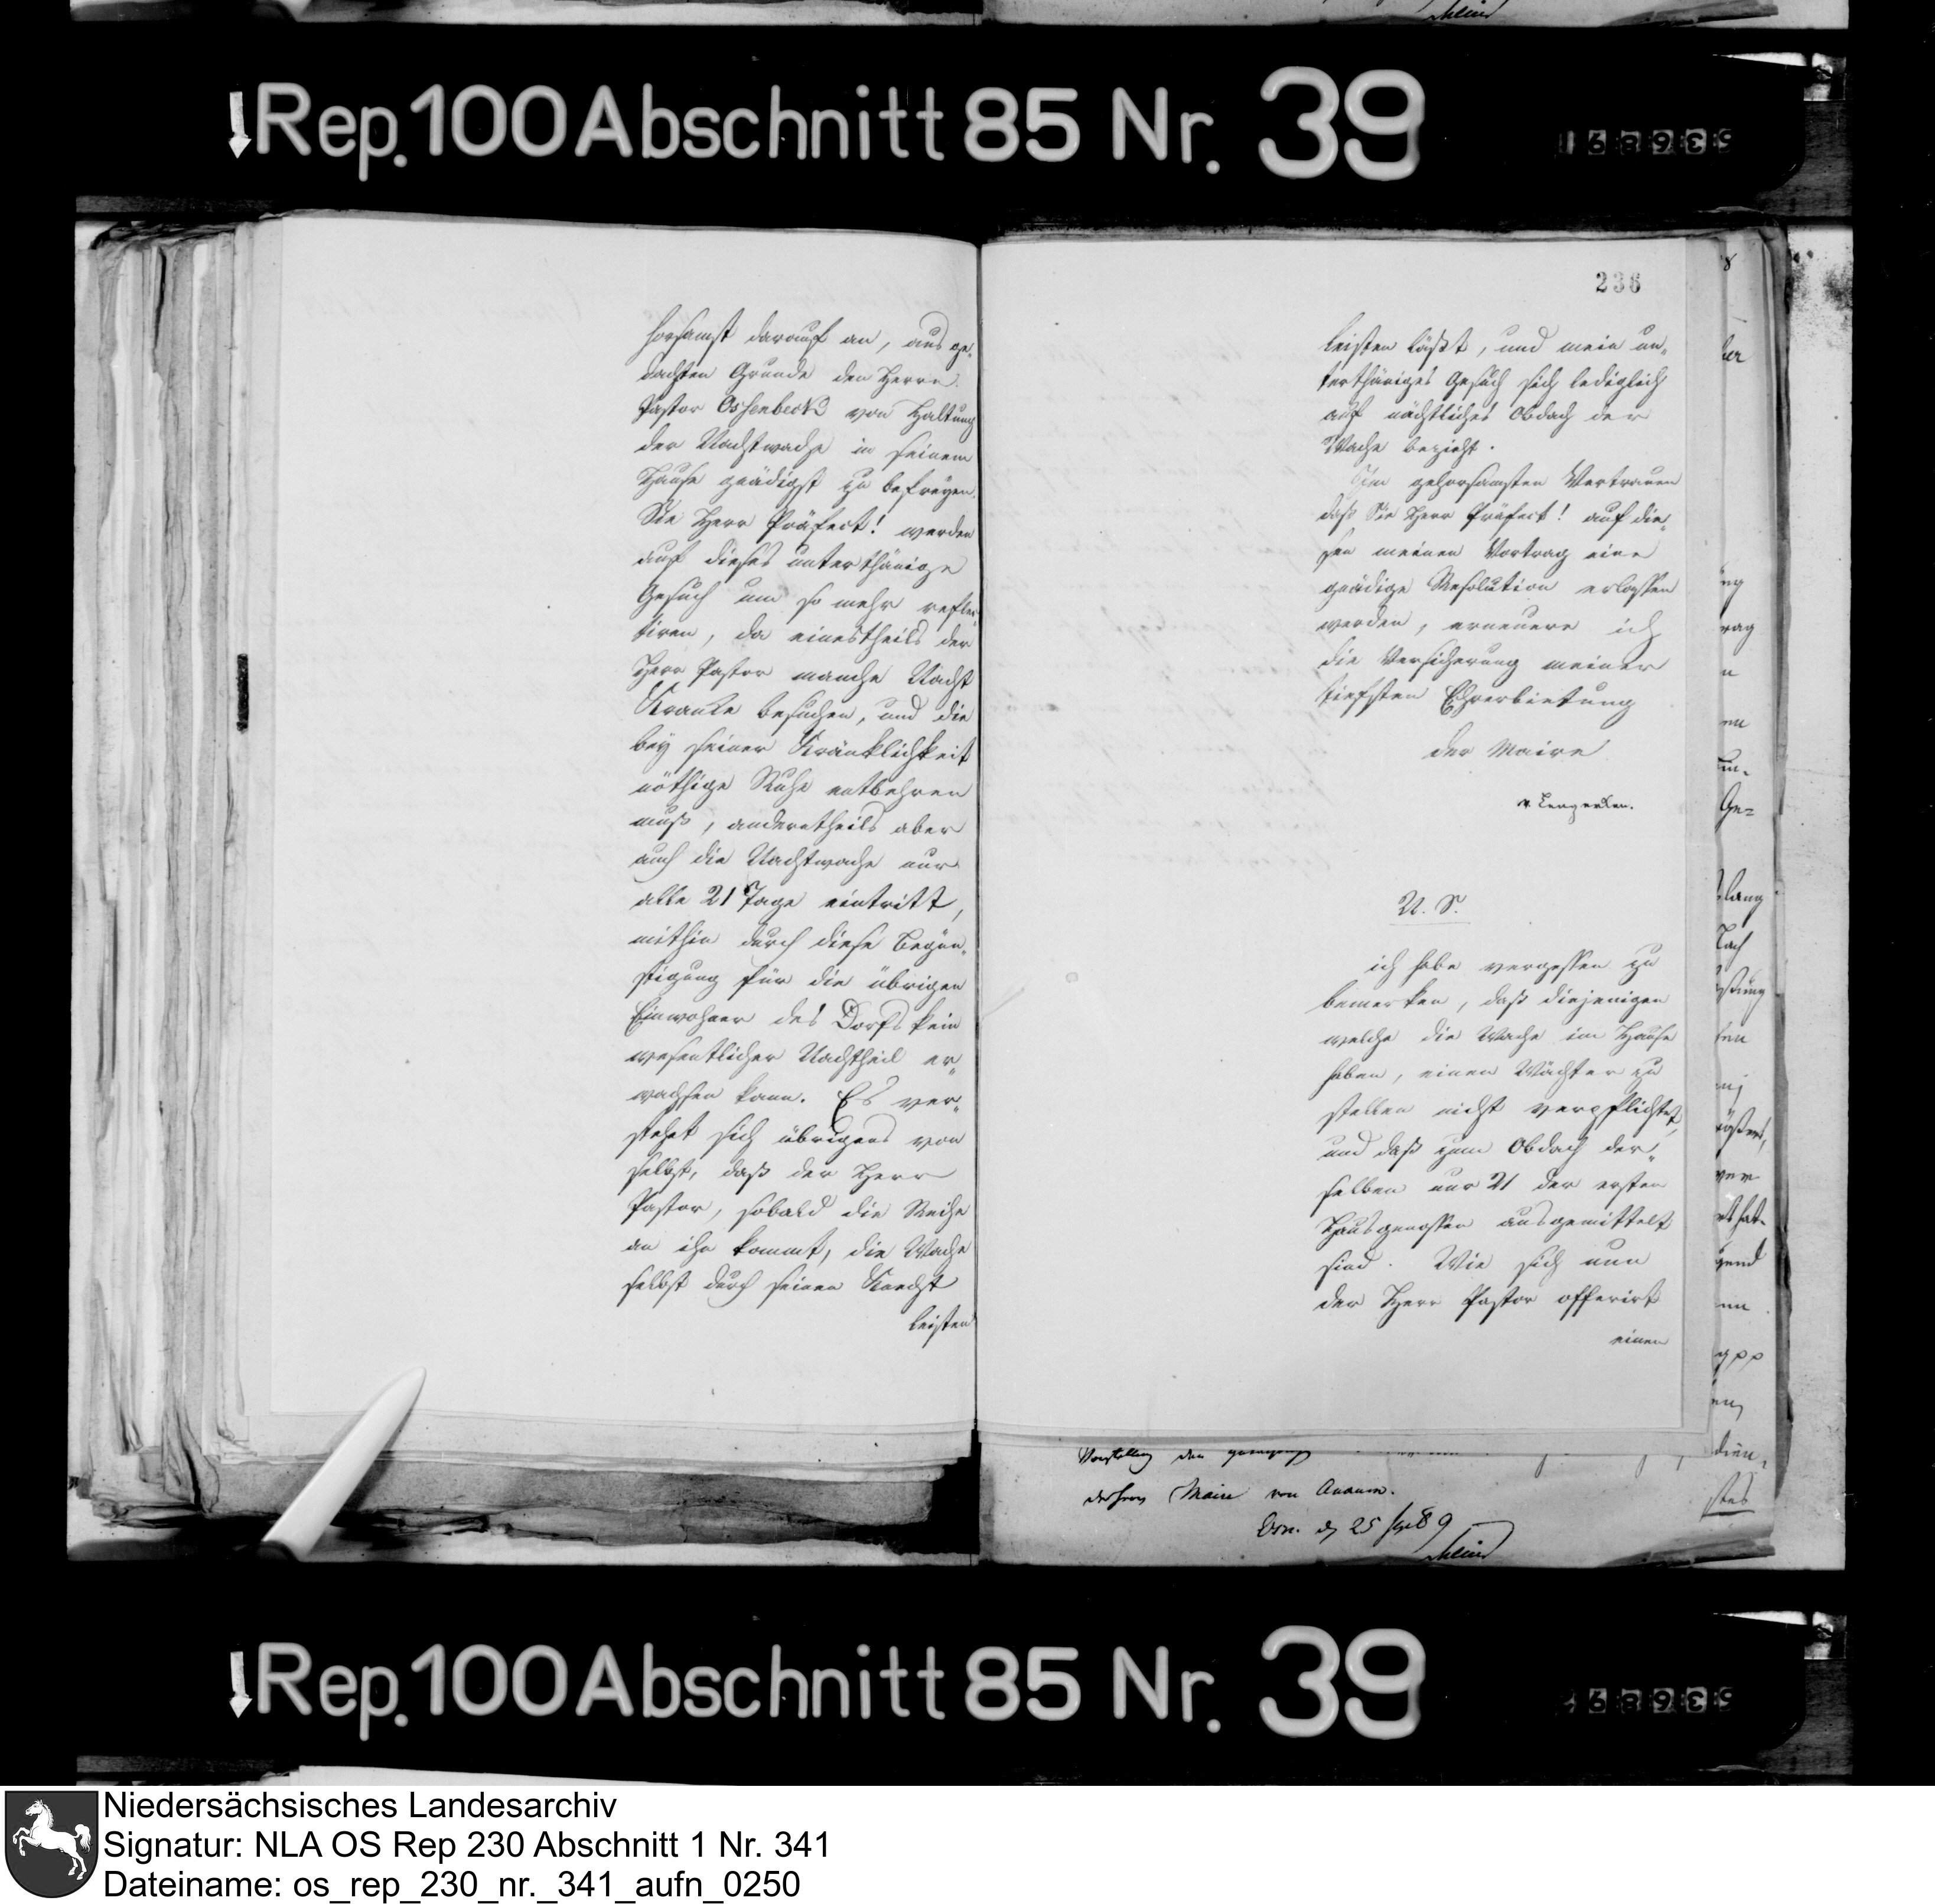 Rep. 100 Abschnitt 85 Nr. 39
horsamst darauf an, aus ge„
dachten Grunde den Herrn
Pastor Ossenbeck von Haltung
der Nachtwache in seinem
Hause gnädigst zu befreyen.
Sie Herr Präfect! werden
auf dieses unterthänige
Gesuch um so mehr reflec„
tiren, da einestheils der
Herr Pastor manche Nacht
Kranke besuchen, und die
bey seiner Kränklichkeit
nöthige Ruhe entbehren
muß, anderntheils aber
auch die Nachtwache nur
alle 21 Tage eintritt,
mithin durch diese Begün„
stigung für die übrigen
Einwohner des Dorfs kein
wesentlicher Nachtheil er„
wachsen kann. Es ver„
stehet sich übrigens von
selbst, daß der Herr
Pastor, sobald die Reihe
an ihn kommt, die Wache
selbst durch seinen Knecht
leisten
236
leisten läßt, und mein un„
terthäniges Gesuch sich lediglich
auf nächtliches Obdach der
Wache bezieht.
Im gehorsamsten Vertrauen
daß Sie Herr Präfect! auf die„
sen meinen Vortrag eine
gnädige Resolution erlassen
werden, erneuere ich
die Versicherung meiner
tiefsten Ehrerbietung
der Maire
v. Lengerken.
N. S.
ich habe vergessen zu
bemerken, daß diejenigen
welche die Wache im Hause
haben, einen Wächter zu
stellen nicht verpflichtet,
und daß zum Obdach der„
selben nur 21 der ersten
Hausgenossen ausgemittelt
sind. Wie sich nun
der Herr Pastor offerirt
einen
Vorstellung den
Maire von Ankum.
Osn. d 25 Sept 89
Rep. 100 Abschnitt 85 Nr. 39
Niedersächsisches Landesarchiv
Signatur: NLA OS Rep 230 Abschnitt 1 Nr. 341
Dateiname: os_rep_230_nr._341_aufn_0250